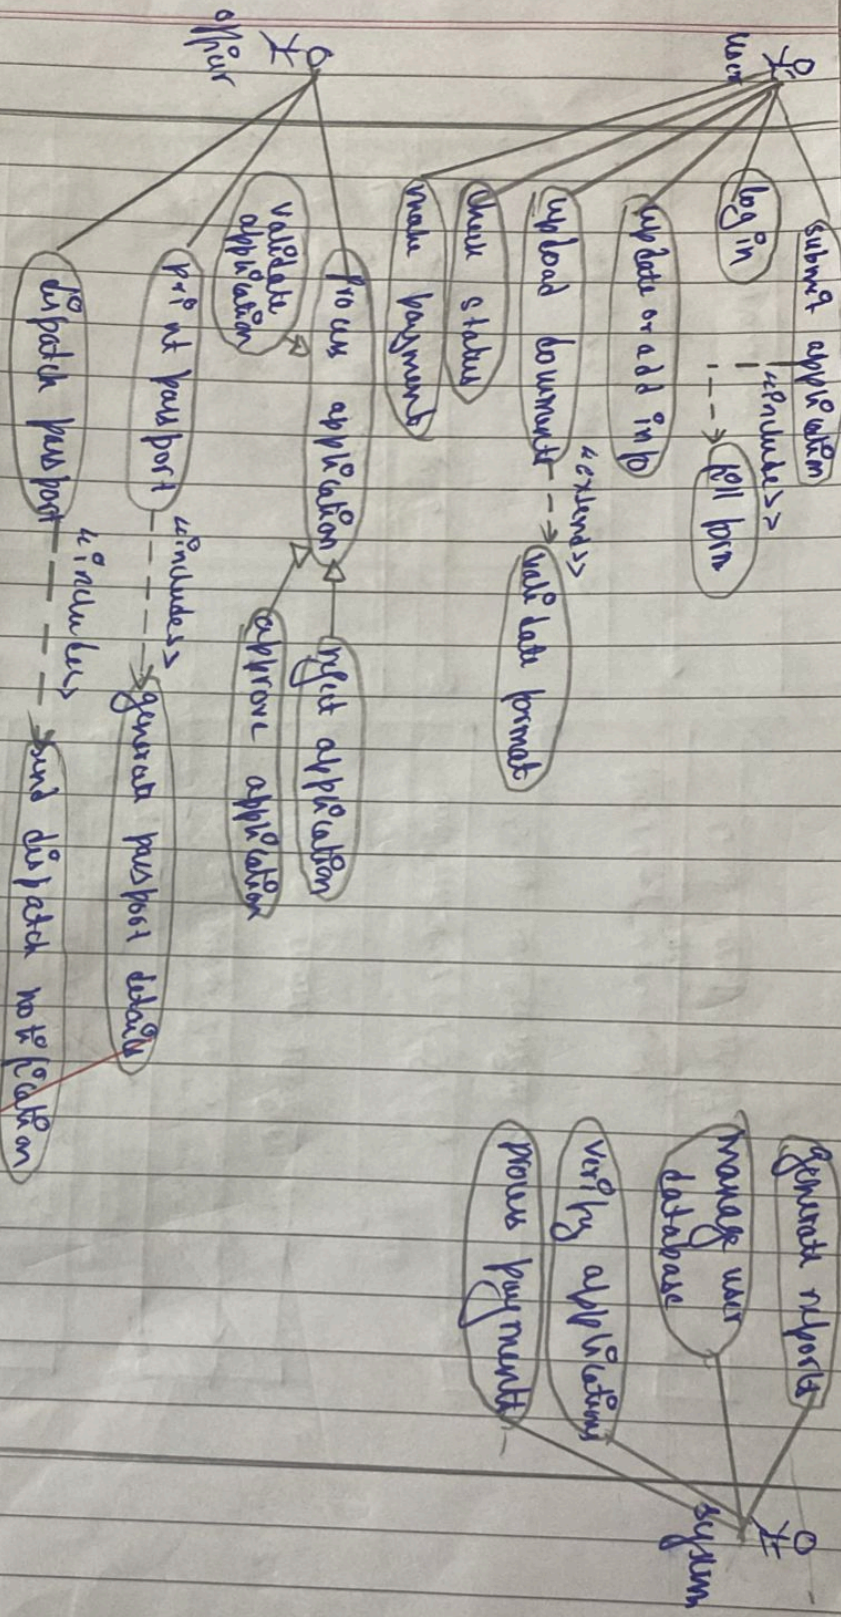 user
submit application
<<includes>>
fill form
log in
update or add info
upload documents
<<extends>>
validate format
check status
make payment
officer
process application
validate
application
reject application
approve application
print passport
<<includes>>
generate passport details
dispatch passport
<<includes>>
send dispatch notification
generate reports
manage user
database
verify applications
process payments
system